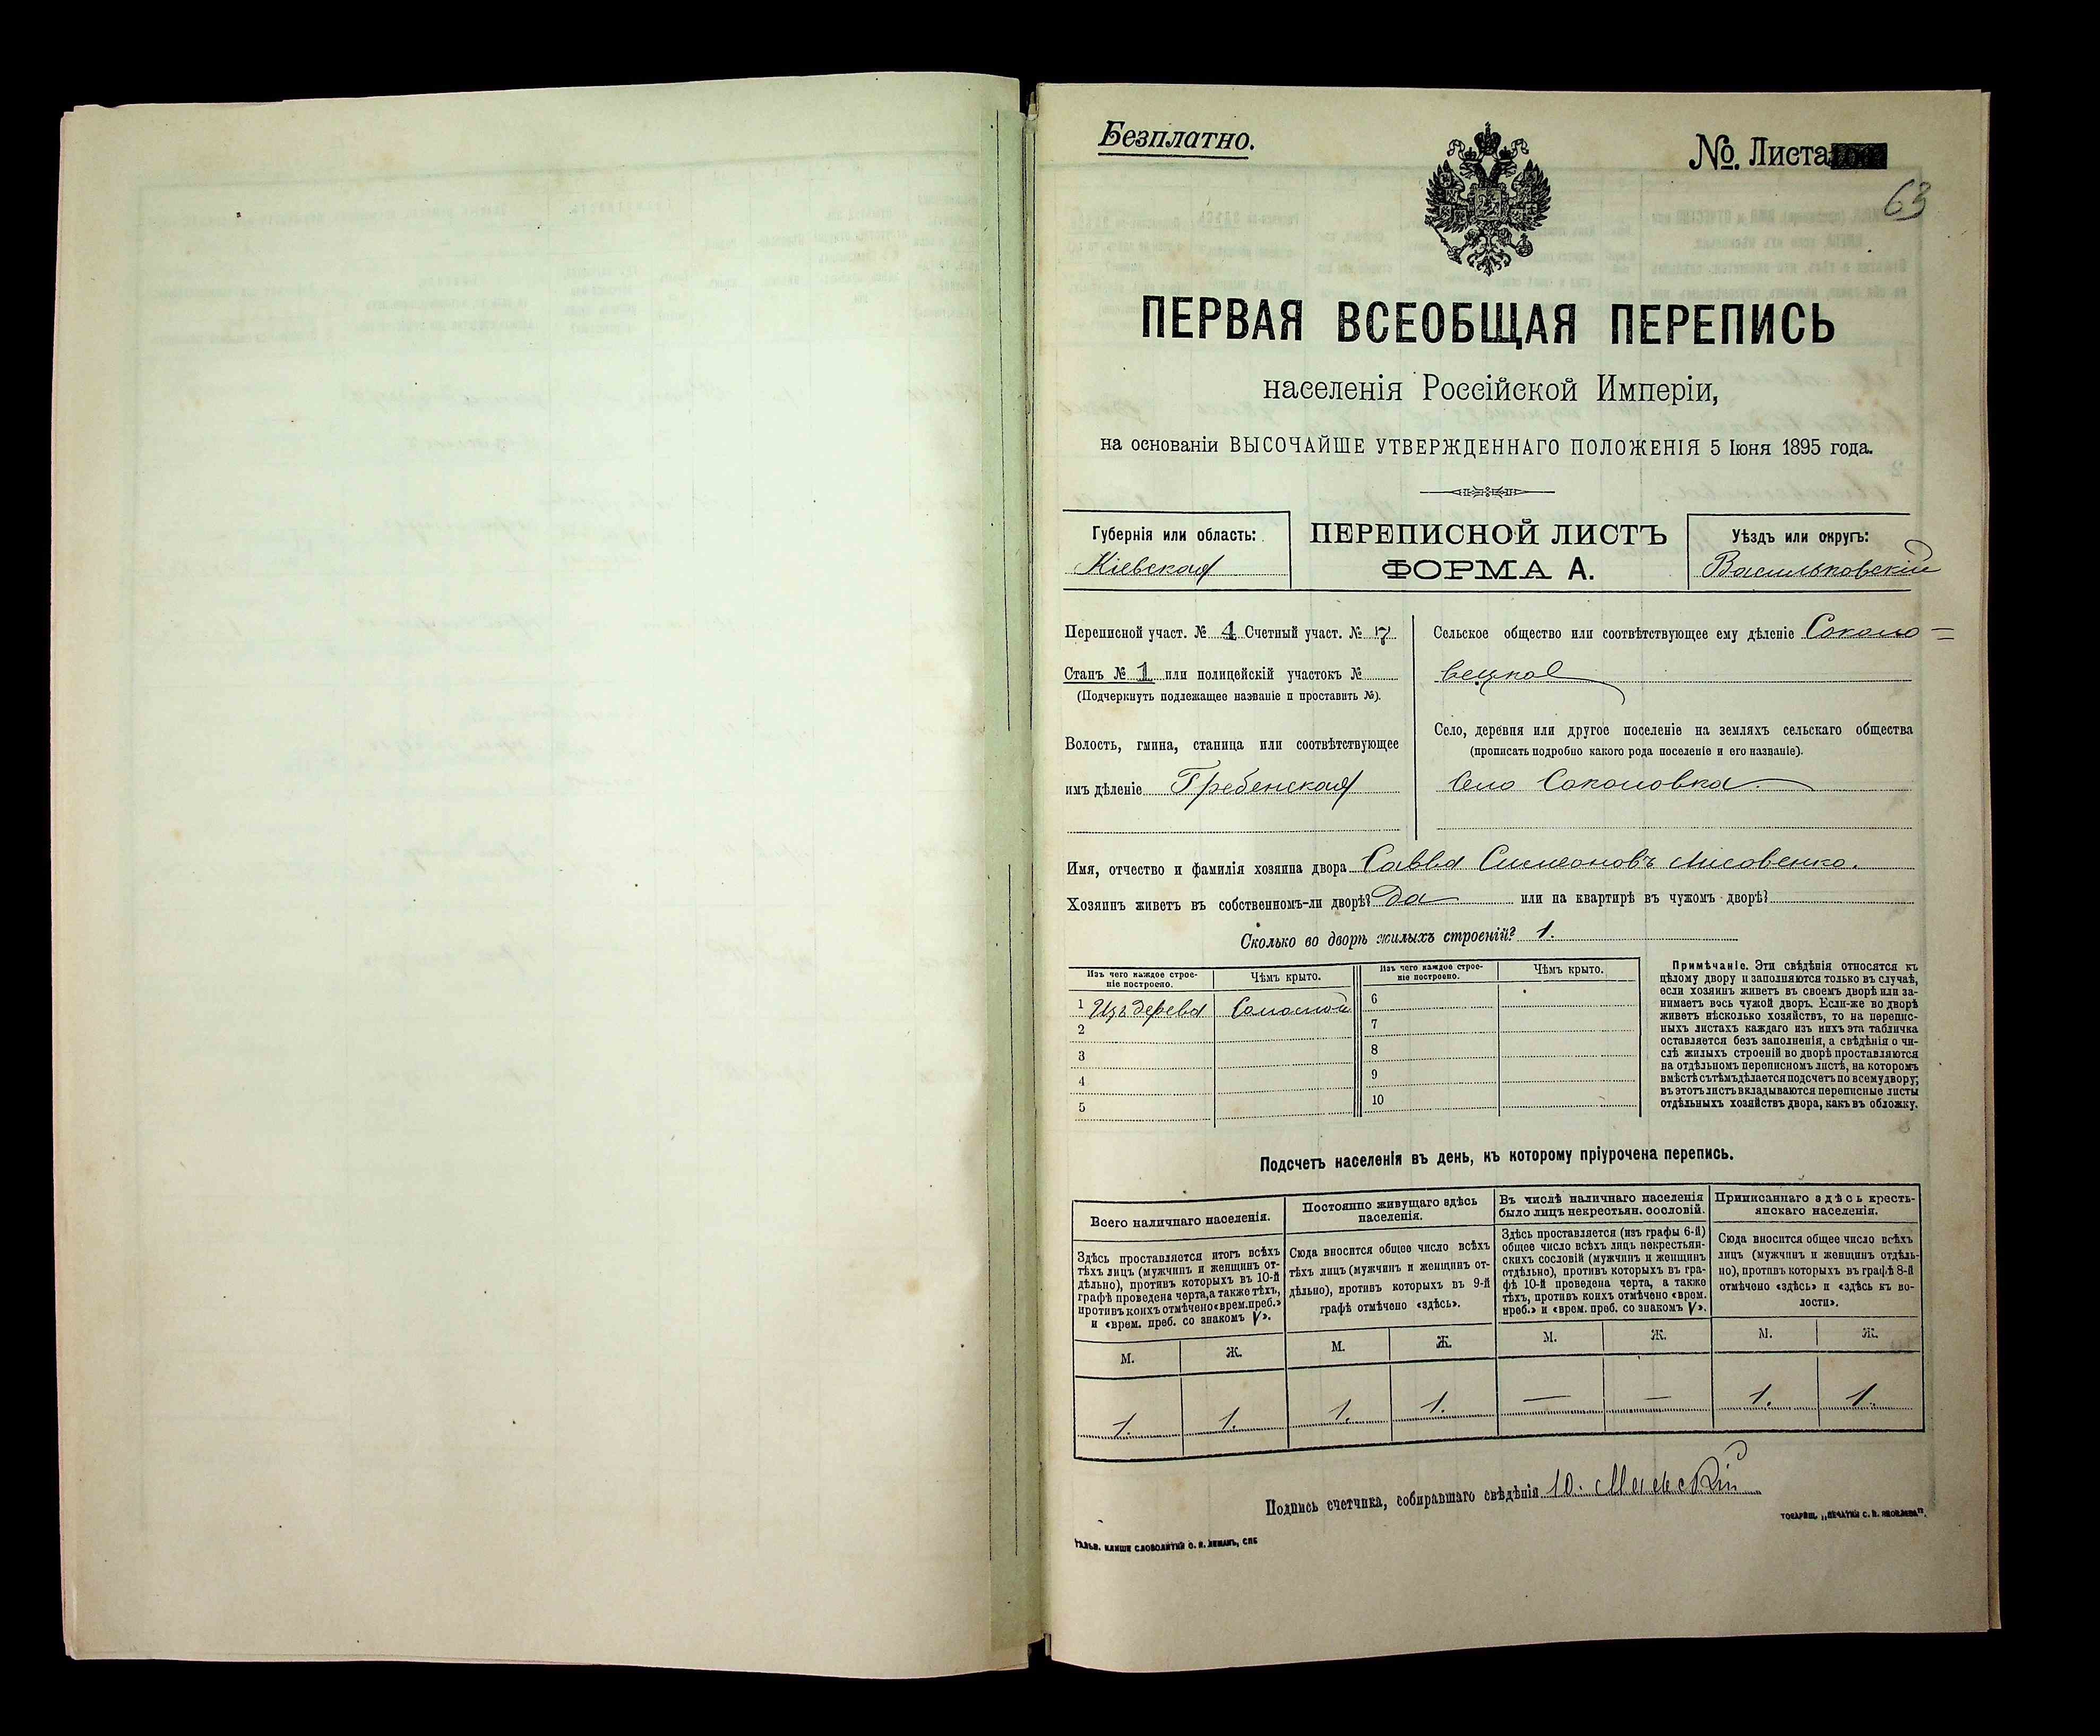 Безплатно.
№. Листа
63
ПЕРВАЯ ВСЕОБЩАЯ ПЕРЕПИСЬ
населенія Россійской Имперіи,
на основаніи ВЫСОЧАЙШЕ УТВЕРЖДЕННАГО ПОЛОЖЕНІЯ 5 Іюня 1895 года.
Губернія или область:
Кіевская
ПЕРЕПИСНОЙ ЛИСТЪ
ФОРМА А.
Уѣздъ или округъ:
Васильковскій
Переписной участ. № 4 Счетный участ. № 7
Станъ № 1 или полицейскій участокъ №
(Подчеркнуть подлежащее названіе и проставить №).
Волость, гмина, станица или соотвѣтствующее
имъ дѣленіе Гребенская
Сельское общество или соотвѣтствующее ему дѣленіе Соколо=
вецкое
Село, деревня или другое поселеніе на земляхъ сельскаго общества
(прописать подробно какого рода поселеніе и его названіе).
Село Соколовка.
Имя, отчество и фамилія хозяина двора Савва Симеоновъ Лисовенко.
Хозяинъ живетъ въ собственномъ-ли дворѣ? Да или на квартирѣ въ чужомъ дворѣ?
Сколько во дворѣ жилыхъ строеній? 1.
Изъ чего каждое строе-
ніе построено.
Чѣмъ крыто.
Изъ чего каждое строе-
ніе построено.
Чѣмъ крыто.
1 Изъ дерева Соломой
2
3
4
5
6
7
8
9
10
Примѣчаніе. Эти свѣдѣнія относятся къ
цѣлому двору и заполняются только въ случаѣ,
если хозяинъ живетъ въ своемъ дворѣ или за-
нимаетъ весь чужой дворъ. Если-же во дворѣ
живетъ нѣсколько хозяйствъ, то на перепис-
ныхъ листахъ каждаго изъ нихъ эта табличка
оставляется безъ заполненія, а свѣдѣнія о чи-
слѣ жилыхъ строеній во дворѣ проставляются
на отдѣльномъ переписномъ листѣ, на которомъ
вмѣстѣ съ тѣмъ дѣлается подсчетъ по всему двору;
въ этотъ листъ вкладываются переписные листы
отдѣльныхъ хозяйствъ двора, какъ въ обложку.
Подсчетъ населенія въ день, къ которому пріурочена перепись.
Всего наличнаго населенія.
Здѣсь проставляется итогъ всѣхъ
тѣхъ лицъ (мужчинъ и женщинъ от-
дѣльно), противъ которыхъ въ 10-й
графѣ проведена черта, а также тѣхъ,
противъ коихъ отмѣчено «врем. преб.»
и «врем. преб. со знакомъ V».
Постоянно живущаго здѣсь
населенія.
Сюда вносится общее число всѣхъ
тѣхъ лицъ (мужчинъ и женщинъ от-
дѣльно), противъ которыхъ въ 9-й
графѣ отмѣчено «здѣсь».
Въ числѣ наличнаго населенія
было лицъ некрестьян. сословій.
Здѣсь проставляется (изъ графы 6-й)
общее число всѣхъ лицъ некрестьян-
скихъ сословій (мужчинъ и женщинъ
отдѣльно), противъ которыхъ въ гра-
фѣ 10-й проведена черта, а также
тѣхъ, противъ коихъ отмѣчено «врем.
преб.» и «врем. преб. со знакомъ V».
Приписаннаго здѣсь кресть-
янскаго населенія.
Сюда вносится общее число всѣхъ
лицъ (мужчинъ и женщинъ отдѣль-
но), противъ которыхъ въ графѣ 8-й
отмѣчено «здѣсь» и «здѣсь къ во-
лости».
М. Ж. М. Ж. М. Ж. М. Ж.
1. 1. 1. 1. — — 1. 1.
Подпись счетчика, собиравшаго свѣдѣнія
ГАЛЬВ. КЛИШЕ СЛОВОЛИТНИ О. И. ЛЕМАНЪ, СПБ
ТОВАРИЩ. „ПЕЧАТНИ С. П. ЯКОВЛЕВА".